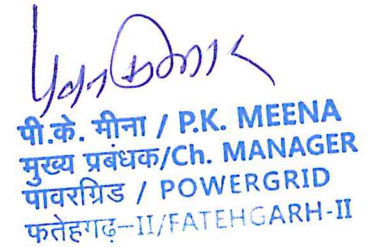 पी.के. मीना / P.K. MEENA
मुख्य प्रबंधक/Ch. MANAGER
पावरग्रिड / POWERGRID
फतेहगढ़-II/FATEHGARH-II